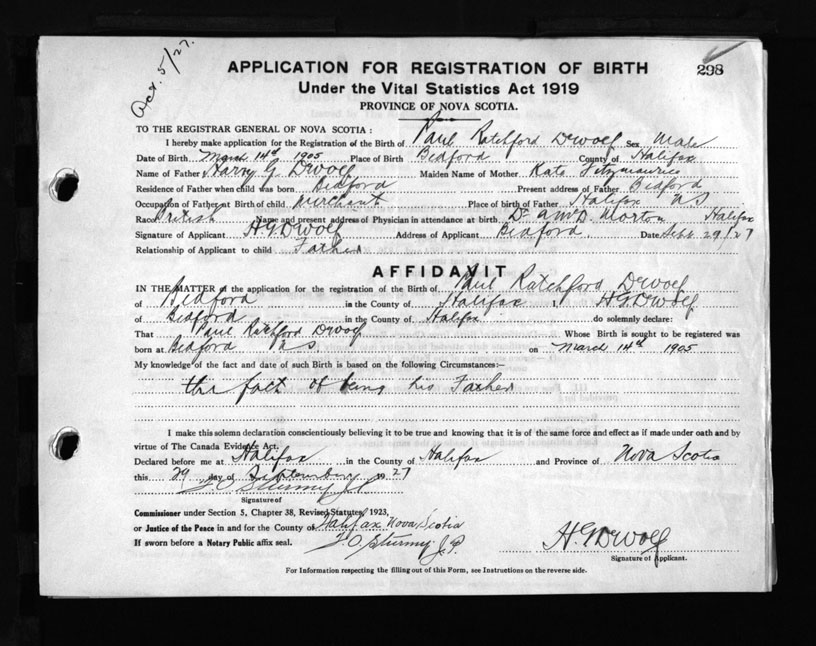 Oct. 5/27.
298
APPLICATION FOR REGISTRATION OF BIRTH
Under the Vital Statistics Act 1919
PROVINCE OF NOVA SCOTIA.
TO THE REGISTRAR GENERAL OF NOVA SCOTIA:
I hereby make application for the Registration of the Birth of Paul Ratchford DeWolf Sex Male
Date of Birth March 14th 1905 Place of Birth Bedford County of Halifax
Name of Father Harry G DeWolf Maiden Name of Mother Kate Fitzmaurice
Residence of Father when child was born Bedford Present address of Father Bedford
Occupation of Father at Birth of child Merchant Place of birth of Father Halifax NS
Race British Name and present address of Physician in attendance at birth Dr A M D. Morton Halifax
Signature of Applicant H G DeWolf Address of Applicant Bedford Date Sept 29/27
Relationship of Applicant to child Father
AFFIDAVIT
IN THE MATTER of the application for the registration of the Birth of Paul Ratchford DeWolf
of Bedford in the County of Halifax I, H G DeWolf
of Bedford in the County of Halifax do solemnly declare:
That Paul Ratchford DeWolf Whose Birth is sought to be registered was
born at Bedford NS on March 14th 1905
My knowledge of the fact and date of such Birth is based on the following Circumstances:—
the fact of being his Father
I make this solemn declaration conscientiously believing it to be true and knowing that it is of the same force and effect as if made under oath and by
virtue of The Canada Evidence Act.
Declared before me at Halifax in the County of Halifax and Province of Nova Scotia
this 29 day of September 1927
Signature of
Commissioner under Section 5, Chapter 38, Revised Statutes, 1923,
or Justice of the Peace in and for the County of Halifax Nova Scotia
If sworn before a Notary Public affix seal.
H. G DeWolf
Signature of Applicant.
For Information respecting the filling out of this Form, see Instructions on the reverse side.